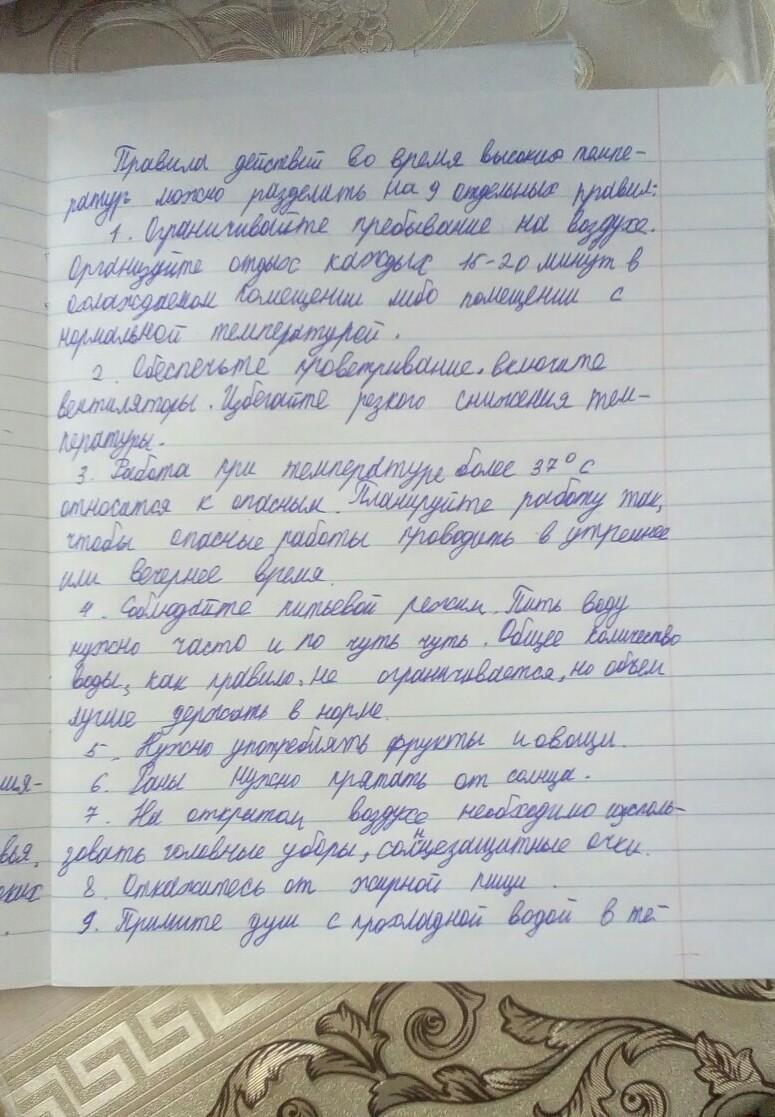 Правила действий во время высоких темпе-
ратур можно разделить на 9 отдельных правил:
1. Ограничивайте пребывание на воздухе.
Организуйте отдых каждых 15-20 минут в
охлаждаемом помещении либо помещении с
нормальной температурой.
2. Обеспечьте проветривание, включите
вентиляторы. Избегайте резкого снижения тем-
пературы.
3. Работа при температуре более 37° С
относятся к опасным. Планируйте работу так,
чтобы опасные работы проводить в утреннее
или вечернее время.
4. Соблюдайте питьевой режим. Пить воду
нужно часто и по чуть чуть. Общее количество
воды, как правило, не ограничивается, но объем
лучше держать в норме.
5. Нужно употреблять фрукты и овощи.
6. Раны нужно прятать от солнца.
7. На открытом воздухе необходимо исполь-
зовать головные уборы, солнцезащитные очки.
8. Откажитесь от жирной пищи.
9. Примите душ с прохладной водой в те-